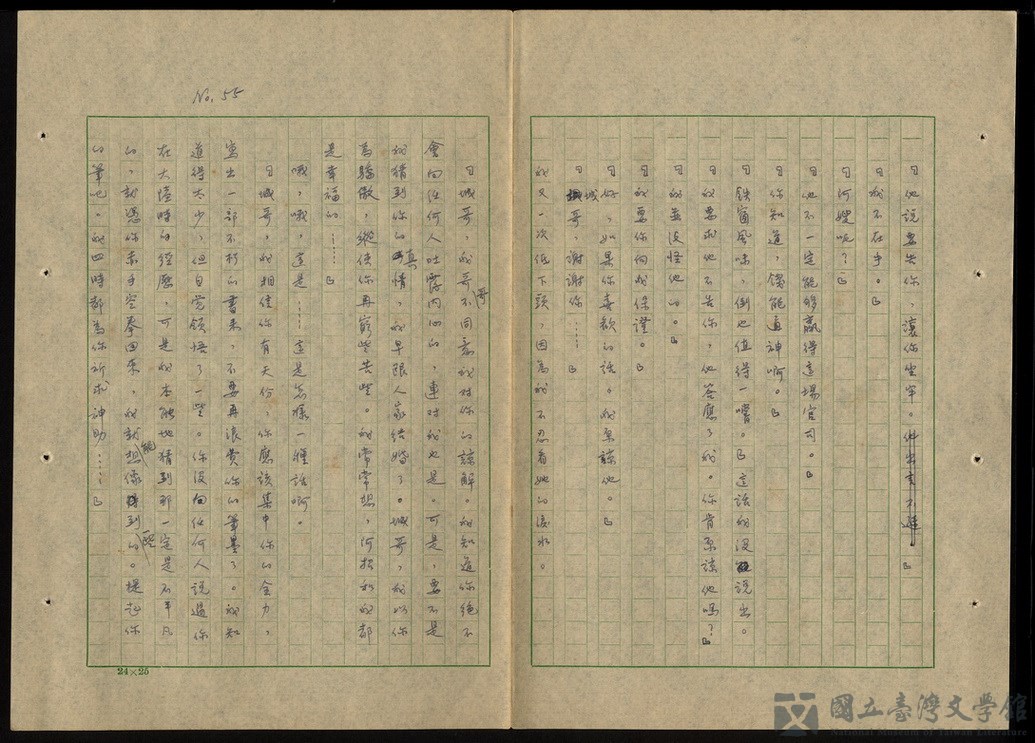 No. 55
「他說要告你，讓你坐牢。他出言不遜。」
「我不在乎。」
「何嫂呢？」
「他不一定能够贏得這場官司。」
「你知道，錢能通神啊。」
「鉄窗風味，倒也值得一嚐。」這話我沒說出。
「我要求他不告你，他答應了我。你肯原諒他嗎？」
「我並沒怪他。」
「我要你向我保證。」
「好，如果你喜歡的話。我原諒他。」
「城哥，謝謝你……」
我又一次低下頭，因為我不忍看她的淚水。
「城哥，我哥哥不同意我對你的諒解。我知道你絕不
會向任何人吐露內心的，連對我也是。可是，要不是
我猜到你的真情，我早跟人家結婚了。城哥，我以你
為驕傲，縱使你再窮些苦些。我常常想，河拾和我都
是幸福的……」
哦，哦，這是……這是怎樣一種話啊。
「城哥，我相信你有天份，你應該集中你的全力，
寫出一部不朽的書來，不要再浪費你的筆墨了。我知
道得太少，但自覺領悟了一些。你沒向任何人說過你
在大陸時的經歷，可是我本能地猜到那一定是不平凡
的，就憑你赤手空拳回來，我就能想像得到一些的。提起你
的筆吧。我四時都為你祈求神助……」
24×25
國立臺灣文學館
National Museum of Taiwan Literature